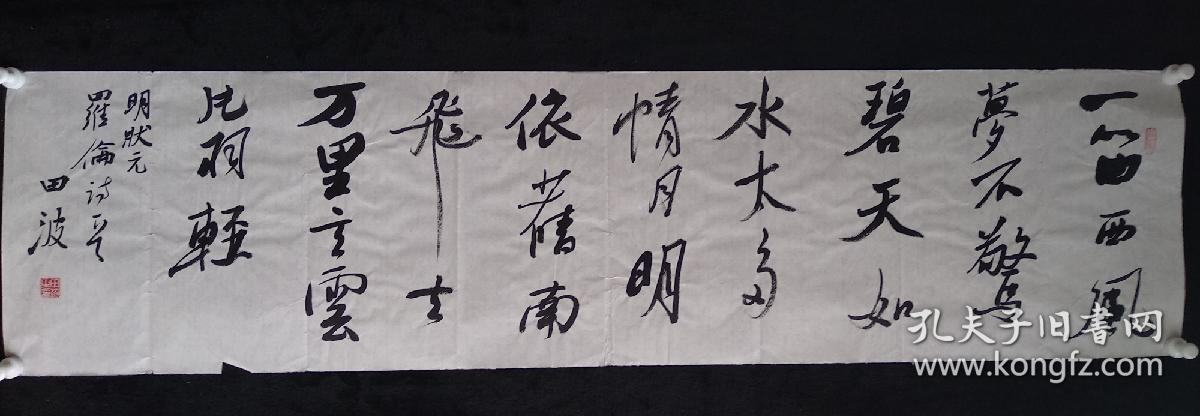 一笛西風
夢不驚
碧天如
水太多
情月明
依舊南
飛去
万里雲
片羽輕
明狀元
羅倫诗
田波
孔夫子旧书网
www.kongfz.com